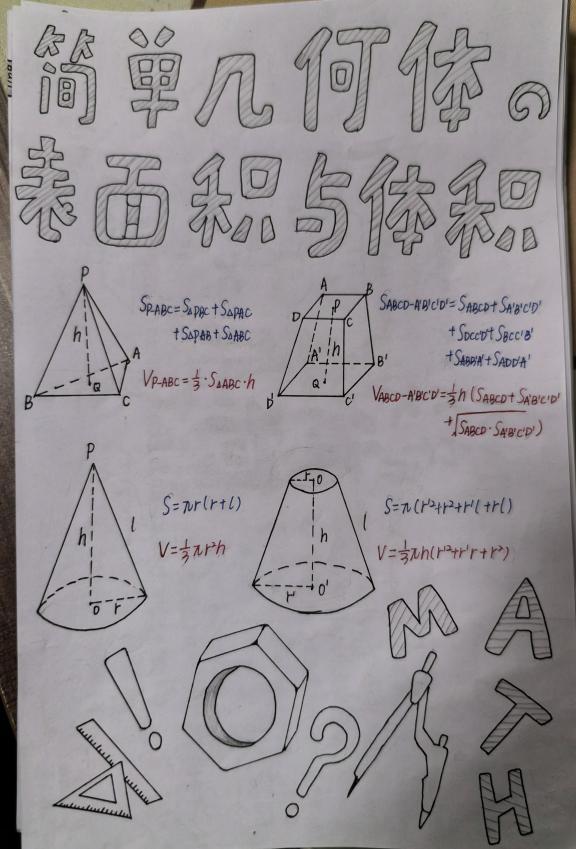 简单几何体の
表面积与体积
P
h
A
Q
B
C
S_{P-ABC}=S_{△PBC}+S_{△PAC}
+S_{△PAB}+S_{△ABC}
V_{P-ABC}=\frac{1}{3}·S_{△ABC}·h
A
B
D
P
C
h
A'
B'
Q
D'
C'
S_{ABCD-A'B'C'D'}=S_{ABCD}+S_{A'B'C'D'}
+S_{DCC'D'}+S_{BCC'B'}
+S_{ABB'A'}+S_{ADD'A'}
V_{ABCD-A'B'C'D'}=\frac{1}{3}h(S_{ABCD}+S_{A'B'C'D'}
+\sqrt{S_{ABCD}·S_{A'B'C'D'}})
P
l
h
O r
S=πr(r+l)
V=\frac{1}{3}πr²h
r O
l
h
r' O'
S=π(r'²+r²+r'l+rl)
V=\frac{1}{3}πh(r'²+r'r+r²)
!
?
M A
T
H